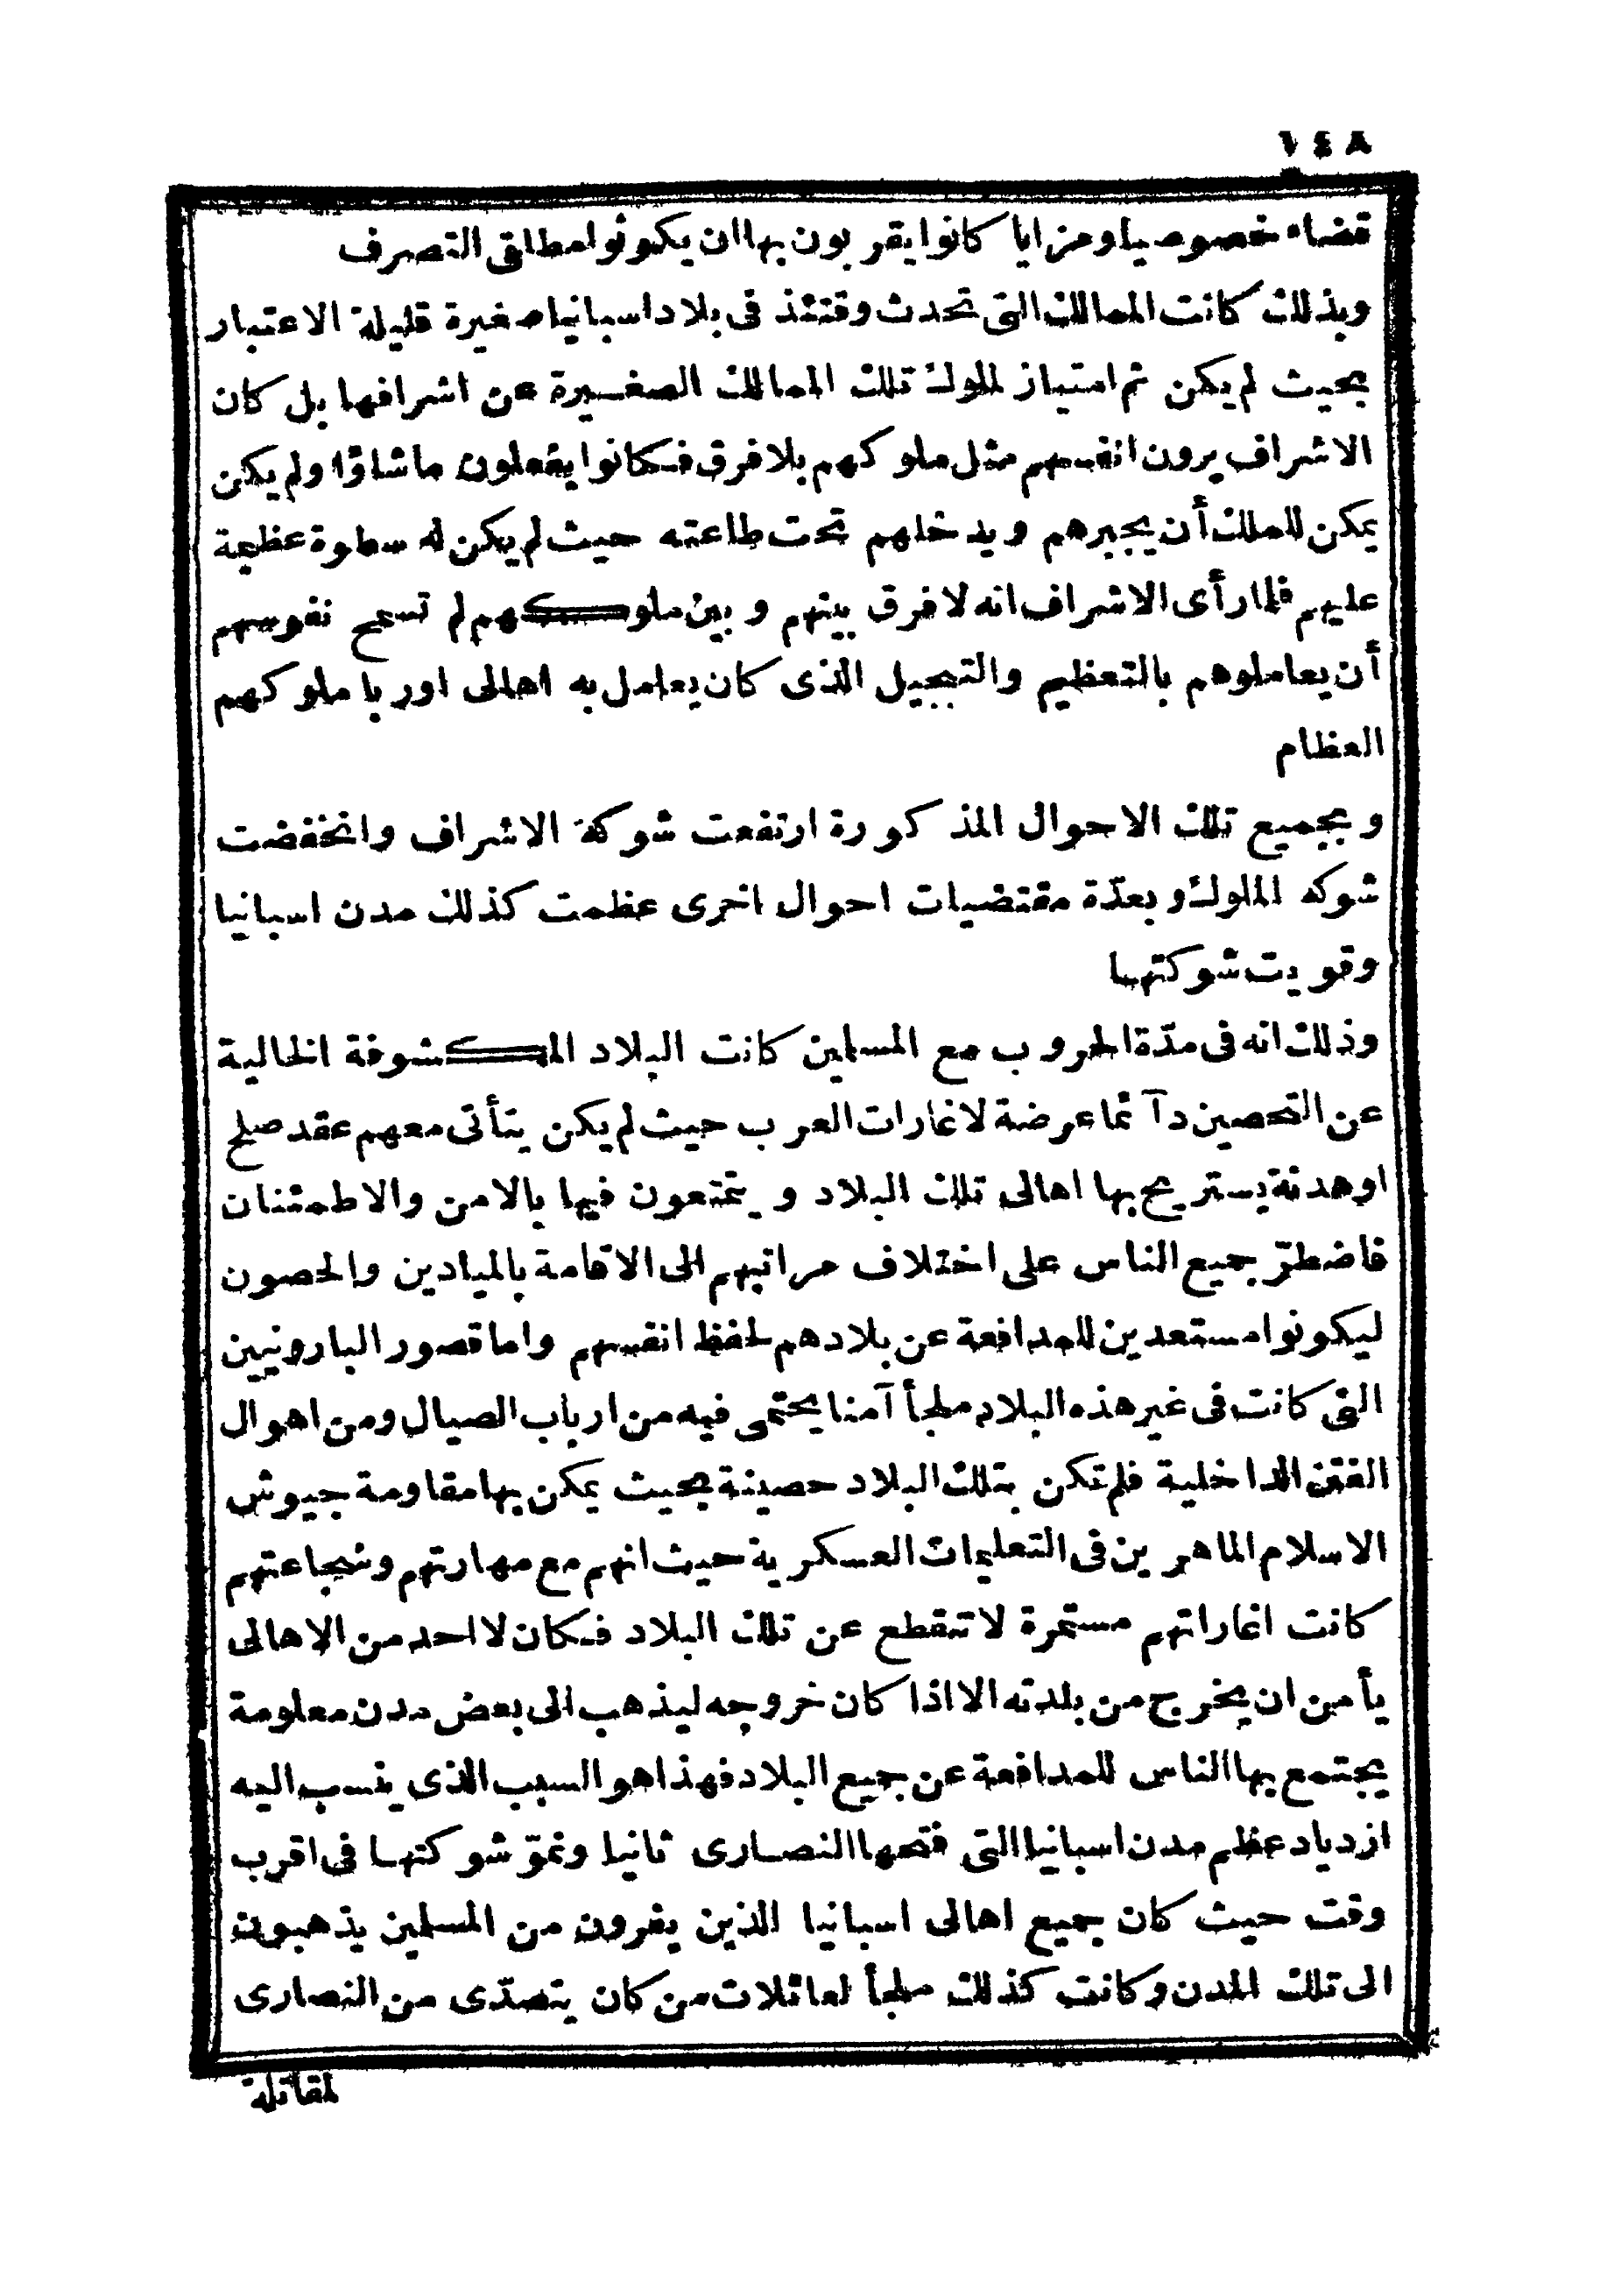 ١٤٨
قضاء خصوصيا ومزايا كانوا يقربون بها ان يكونوا مطلق التصرف
وبذلك كانت الممالك التى تحدث وقتئذ فى بلاد اسبانيا صغيرة قليلة الاعتبار
بحيث لم يكن ثم امتياز لملوك تلك الممالك الصغيرة عن اشرافها بل كان
الاشراف يرون انفسهم مثل ملوكهم بلا فرق فكانوا يفعلون ما شاؤا ولم يكن
يمكن للملك أن يجبرهم ويدخلهم تحت طاعته حيث لم يكن له سطوة عظيمة
عليهم فلما رأى الاشراف انه لا فرق بينهم وبين ملوكهم لم تسمح نفوسهم
أن يعاملوهم بالتعظيم والتبجيل الذى كان يعامل به اهالى اوربا ملوكهم
العظام
وبجميع تلك الاحوال المذكورة ارتفعت شوكة الاشراف وانخفضت
شوكه الملوك وبعدّة مقتضيات احوال اخرى عظمت كذلك مدن اسبانيا
وقويت شوكتها
وذلك انه فى مدّة الحروب مع المسلمين كانت البلاد المكشوفة الخالية
عن التحصين دآئما عرضة لاغارات العرب حيث لم يكن يتأتى معهم عقد صلح
اوهدنة يستريح بها اهالى تلك البلاد ويتمتعون فيها بالامن والاطمئنان
فاضطرّ جميع الناس على اختلاف مراتبهم الى الاقامة بالميادين والحصون
ليكونوا مستعدين للمدافعة عن بلادهم لحفظ انفسهم واما قصور البارونيين
التى كانت فى غير هذه البلاد ملجأ آمنا يحتمى فيه من ارباب الصيال ومن اهوال
الفتن الداخلية فلم تكن بتلك البلاد حصينة بحيث يمكن بها مقاومة جيوش
الاسلام الماهرين فى التعليمات العسكرية حيث انهم مع مهارتهم وشجاعتهم
كانت اغاراتهم مستمرة لا تنقطع عن تلك البلاد فكان لا احد من الاهالى
يأمن ان يخرج من بلدته الا اذا كان خروجه ليذهب الى بعض مدن معلومة
يجتمع بها الناس للمدافعة عن جميع البلاد فهذا هو السبب الذى ينسب اليه
ازدياد عظم مدن اسبانيا التى فتحها النصارى ثانيا ونموّ شوكتها فى اقرب
وقت حيث كان جميع اهالى اسبانيا الذين يفرون من المسلمين يذهبون
الى تلك المدن وكانت كذلك ملجأ لعائلات من كان يتصدّى من النصارى
لمقاتلة